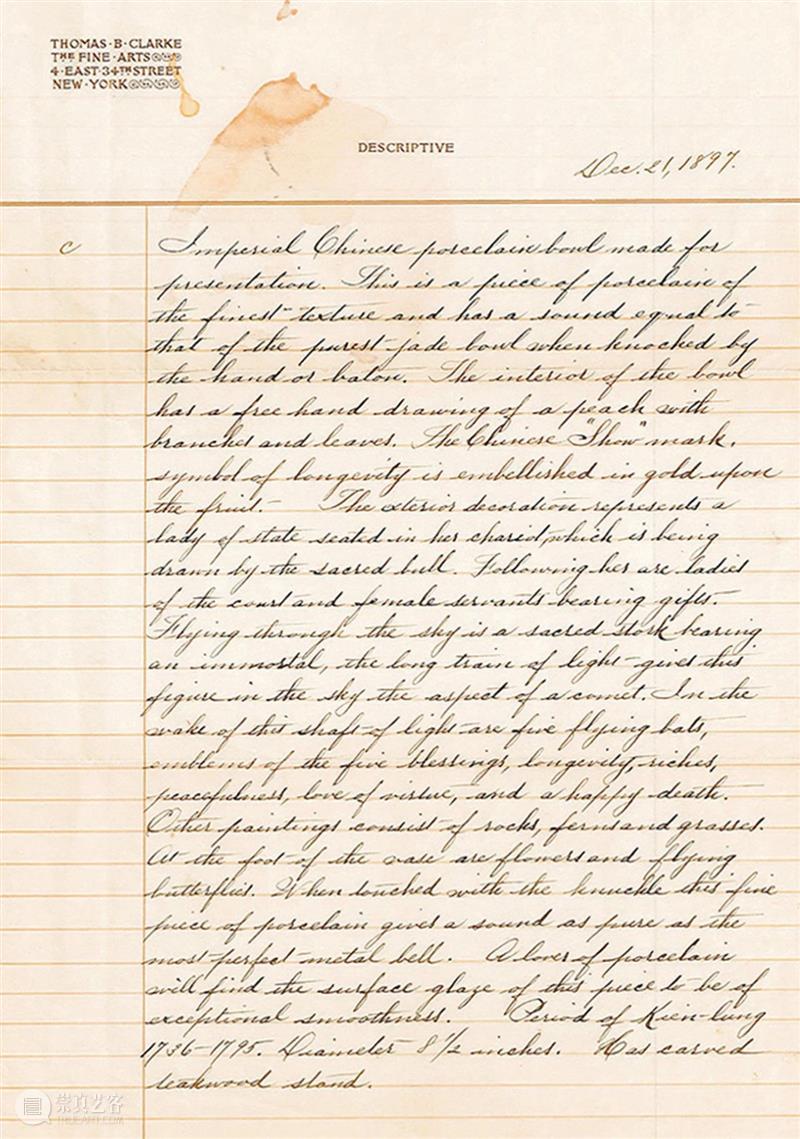 THOMAS·B·CLARKE
THE FINE·ARTS
4·EAST·34TH STREET
NEW·YORK
DESCRIPTIVE
Dec. 21, 1897.
c
Imperial Chinese porcelain bowl made for
presentation. This is a piece of porcelain of
the finest texture and has a sound equal to
that of the purest jade bowl when knocked by
the hand or baton. The interior of the bowl
has a free hand drawing of a peach with
branches and leaves. The Chinese "Show" mark,
symbol of longevity is embellished in gold upon
the fruit.- The exterior decoration represents a
lady of state seated in her chariot, which is being
drawn by the sacred bull. Following her are ladies
of the court and female servants bearing gifts.
Flying through the sky is a sacred stork bearing
an immortal, the long train of light gives this
figure in the sky the aspect of a comet. In the
wake of this shaft of light are five flying bats,
emblems of the five blessings, longevity, riches,
peacefulness, love of virtue, and a happy death.
Other paintings consist of rocks, ferns and grasses.
At the foot of the vase are flowers and flying
butterflies. When touched with the knuckle this fine
piece of porcelain gives a sound as pure as the
most perfect metal bell. A lover of porcelain
will find the surface glaze of this piece to be of
exceptional smoothness. Period of Kien-lung
1736-1795. Diameter 8 1/2 inches. Has carved
teakwood stand.
崇真艺客